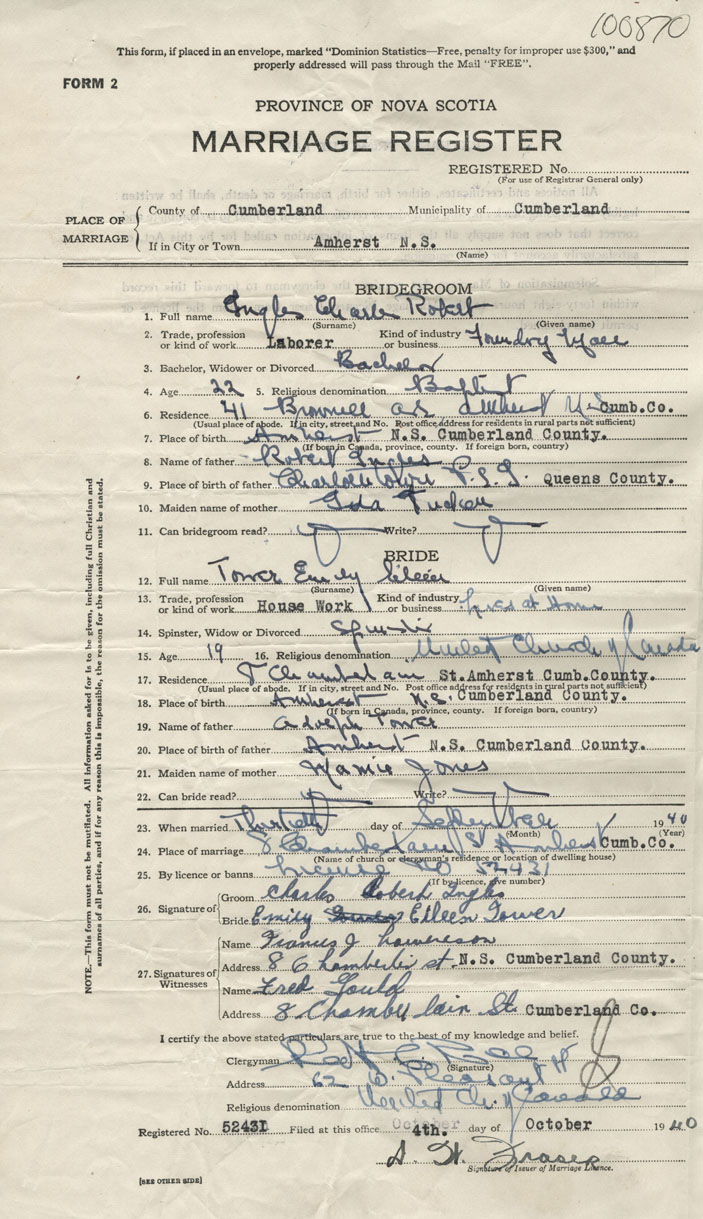 100870
This form, if placed in an envelope, marked "Dominion Statistics—Free, penalty for improper use $300," and
properly addressed will pass through the Mail "FREE".
FORM 2
PROVINCE OF NOVA SCOTIA
MARRIAGE REGISTER
REGISTERED No.
(For use of Registrar General only)
PLACE OF MARRIAGE
County of Cumberland Municipality of Cumberland
If in City or Town Amherst N.S.
(Name)
BRIDEGROOM
1. Full name Ingles Charles Robert
(Surname) (Given name)
2. Trade, profession or kind of work Laborer Kind of industry or business Foundry
3. Bachelor, Widower or Divorced Bachelor
4. Age 22 5. Religious denomination Baptist
6. Residence 41 Amherst N.S. Cumb.Co.
(Usual place of abode. If in city, street and No. Post office address for residents in rural parts not sufficient)
7. Place of birth Amherst N.S. Cumberland County.
(If born in Canada, province, county. If foreign born, country)
8. Name of father Robert Ingles
9. Place of birth of father Charlottetown P.E.I. Queens County.
10. Maiden name of mother Ida Tucker
11. Can bridegroom read? Write?
BRIDE
12. Full name Tower Emily Eileen
(Surname) (Given name)
13. Trade, profession or kind of work House Work Kind of industry or business at Home
14. Spinster, Widow or Divorced Spinster
15. Age 19 16. Religious denomination United Church of Canada
17. Residence 8 Chamberlain St.Amherst Cumb.County.
(Usual place of abode. If in city, street and No. Post office address for residents in rural parts not sufficient)
18. Place of birth Amherst N.S. Cumberland County.
(If born in Canada, province, county. If foreign born, country)
19. Name of father Adolph Tower
20. Place of birth of father Amherst N.S. Cumberland County.
21. Maiden name of mother Mamie Jones
22. Can bride read? Write?
23. When married Thirtieth day of September 1940
(Month) (Year)
24. Place of marriage 8 Chamberlain St Amherst Cumb.Co.
(Name of church or clergyman's residence or location of dwelling house)
25. By licence or banns License No 52431
(If by licence, give number)
26. Signature of
Groom Charles Robert Ingles
Bride Emily Eileen Tower
27. Signatures of Witnesses
Name Francis J Lowerison
Address 8 Chamberlin st. N.S. Cumberland County.
Name Fred Gould
Address 8 Chamberlain St. Cumberland Co.
I certify the above stated particulars are true to the best of my knowledge and belief.
Clergyman
(Signature)
Address 62 W. Pleasant St
Religious denomination United Ch. of Canada
Registered No. 52431 Filed at this office 4th. day of October 1940
Signature of Issuer of Marriage Licence.
[SEE OTHER SIDE]
NOTE.—This form must not be mutilated. All information asked for is to be given, including full Christian and
surnames of all parties, and if for any reason this is impossible, the reason for the omission must be stated.